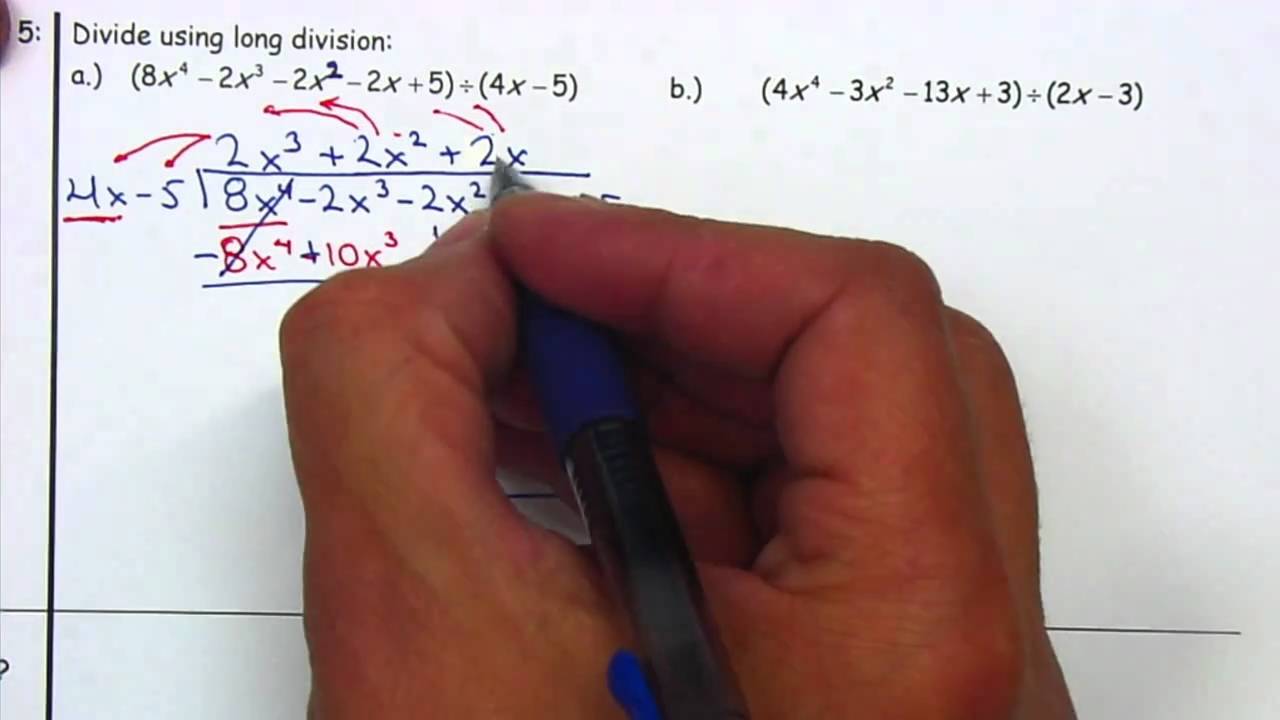 5: Divide using long division:
a.) (8x⁴ − 2x³ − 2x² − 2x + 5) ÷ (4x − 5)
b.) (4x⁴ − 3x² − 13x + 3) ÷ (2x − 3)
2x³ + 2x² + 2x
4x − 5 8x⁴ − 2x³ − 2x²
− 8x⁴ + 10x³
?